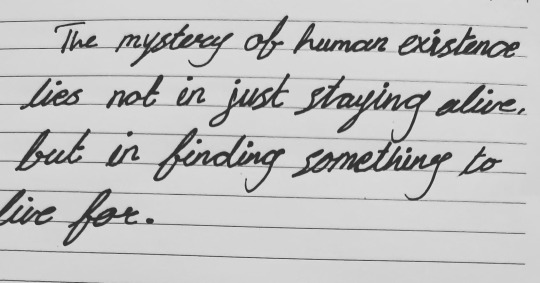 The mystery of human existence
lies not in just staying alive,
but in finding something to
live for.